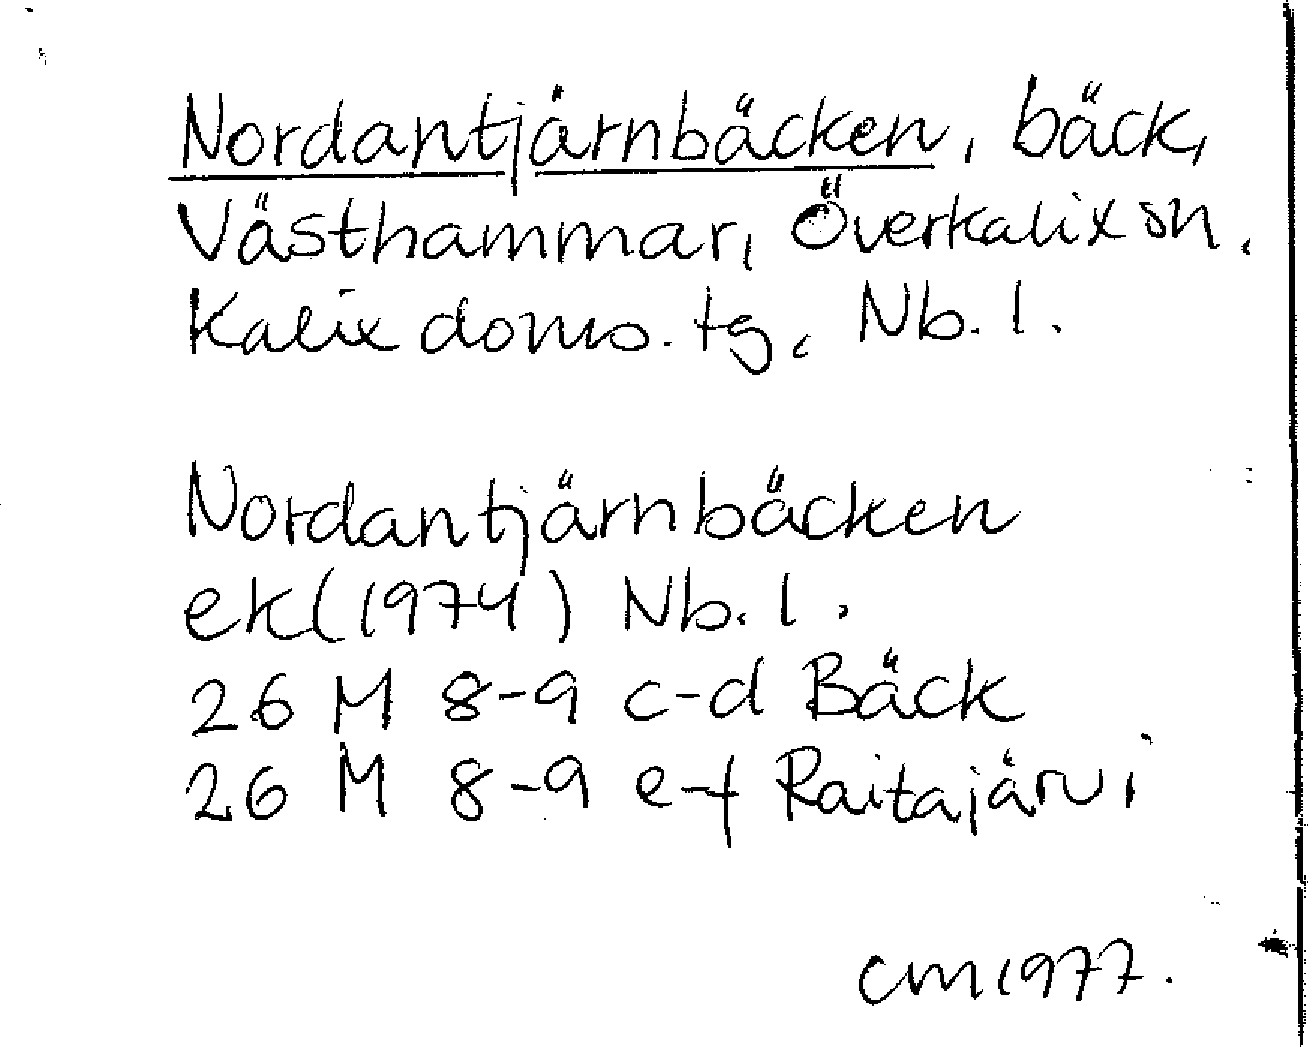 Nordantjärnbäcken, bäck,
Västhammar, Överkalix sn,
Kalix doms. tg, Nb. l.
Nordantjärnbäcken
ek (1974) Nb. l.
26 M 8-9 c-d Bäck
26 M 8-9 e-f Raitajärvi
CM 1977.